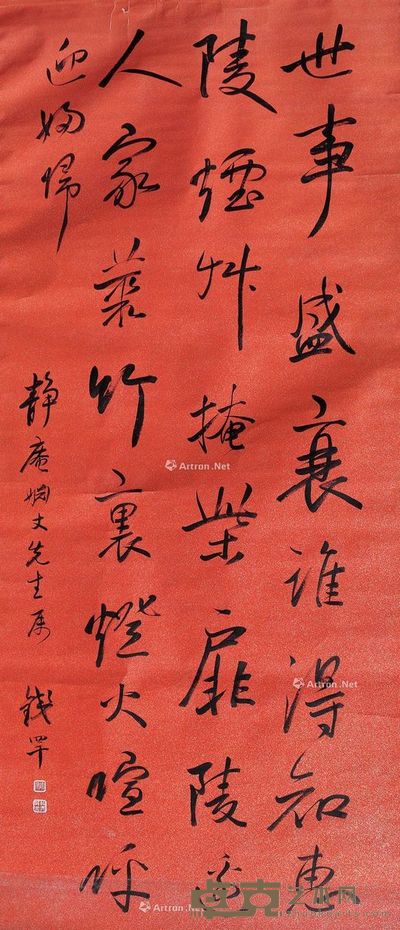 世事盛衰誰得知惠
陵煙艸掩柴扉陵
人家叢竹裏燈火喧呼
迎婦歸
靜庵姻丈先生屬 錢罕
Artron.Net
Artron.Net
Artron.Net
卓克艺术网